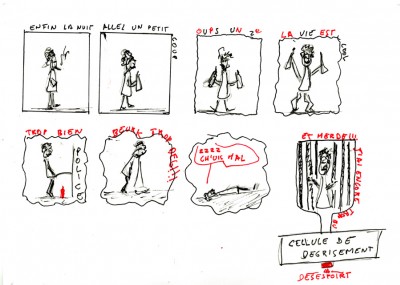 ENFIN LA NUIT
ALLEZ UN PETIT
COUP
OUPS UN 2e
LA VIE EST
COOL
TROP BIEN
POLICE
BEURK TROP
ZZZZ
CH'UIS MAL
ET MERDE!!!
J'AI ENCORE
CELLULE DE
DEGRISEMENT
DESESPOIRT